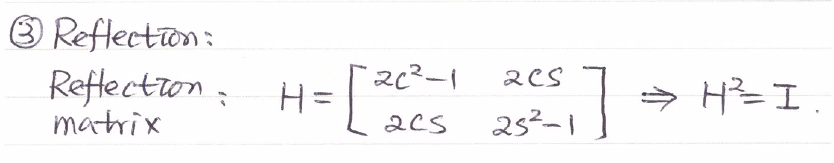 ③ Reflection:
Reflection matrix : H = [ 2c²-1 2cs ; 2cs 2s²-1 ] ⇒ H² = I.